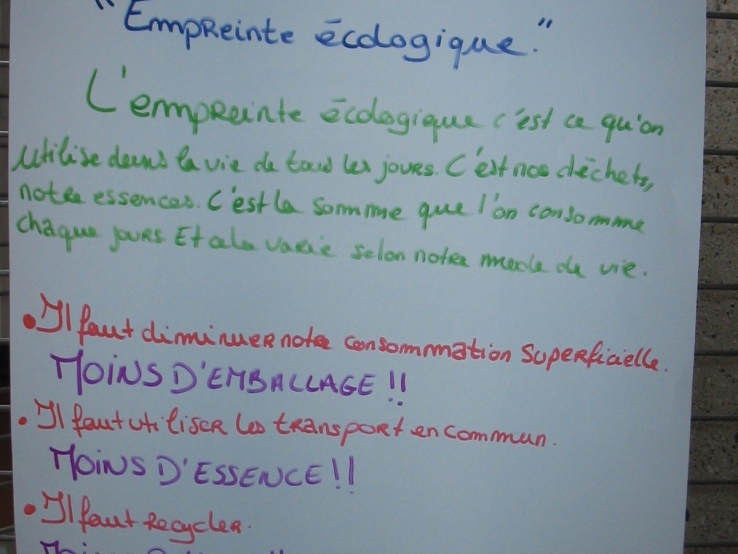 "Empreinte écologique."
L'empreinte écologique c'est ce qu'on
utilise dans la vie de tous les jours. C'est nos déchets,
notre essences. C'est la somme que l'on consomme
chaque jours. Et cela varie selon notre mode de vie.
• Il faut diminuer notre consommation superficielle.
MOINS D'EMBALLAGE !!
• Il faut utiliser les transport en commun.
MOINS D'ESSENCE !!
• Il faut recycler.